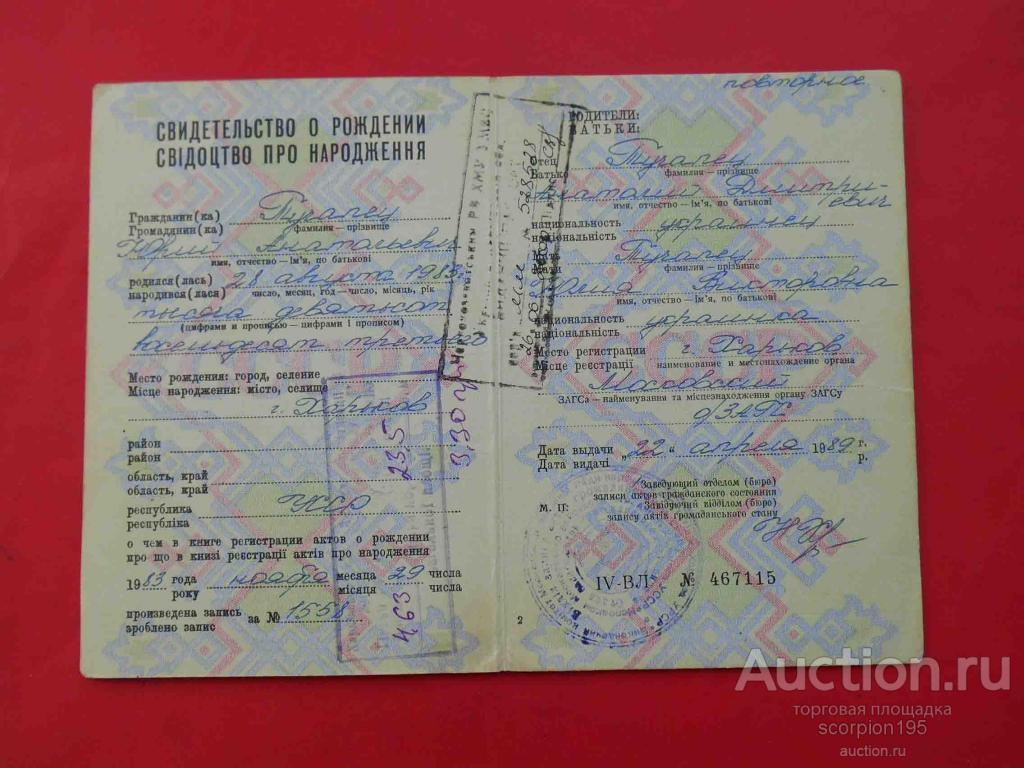 СВИДЕТЕЛЬСТВО О РОЖДЕНИИ
СВІДОЦТВО ПРО НАРОДЖЕННЯ
Гражданин(ка)
Громадянин(ка) фамилия — прізвище
Юрий Анатольевич
имя, отчество — ім'я, по батькові
родился(лась) 28 августа 1983
народився(лася) число, месяц, год — число, місяць, рік
тысяча девятьсот
(цифрами и прописью — цифрами і прописом)
восемьдесят третьего
Место рождения: город, селение
Місце народження: місто, селище
г. Харьков
район
район
область, край
область, край
республика УССР
республіка
о чем в книге регистрации актов о рождении
про що в книзі реєстрації актів про народження
1983 года ноября месяца 29 числа
року місяця числа
произведена запись за № 1558
зроблено запис
3,30
235
4,63
повторное
РОДИТЕЛИ:
БАТЬКИ:
Отец
Батько фамилия — прізвище
Анатолий Дмитри-
евич
имя, отчество — ім'я, по батькові
национальность украинец
національність
Мать
Мати фамилия — прізвище
Викторовна
имя, отчество — ім'я, по батькові
национальность украинка
національність
Место регистрации г. Харьков
Місце реєстрації наименование и местонахождение органа
Московский
ЗАГСа — найменування та місцезнаходження органу ЗАГСу
о/ЗАГС
Дата выдачи „22“ апреля 1989 г.
Дата видачі р.
Заведующий отделом (бюро)
записи актов гражданского состояния
М. П. Завідуючий відділом (бюро)
запису актів громадянського стану
IV-ВЛ № 467115
2
Auction.ru
торговая площадка
scorpion195
auction.ru